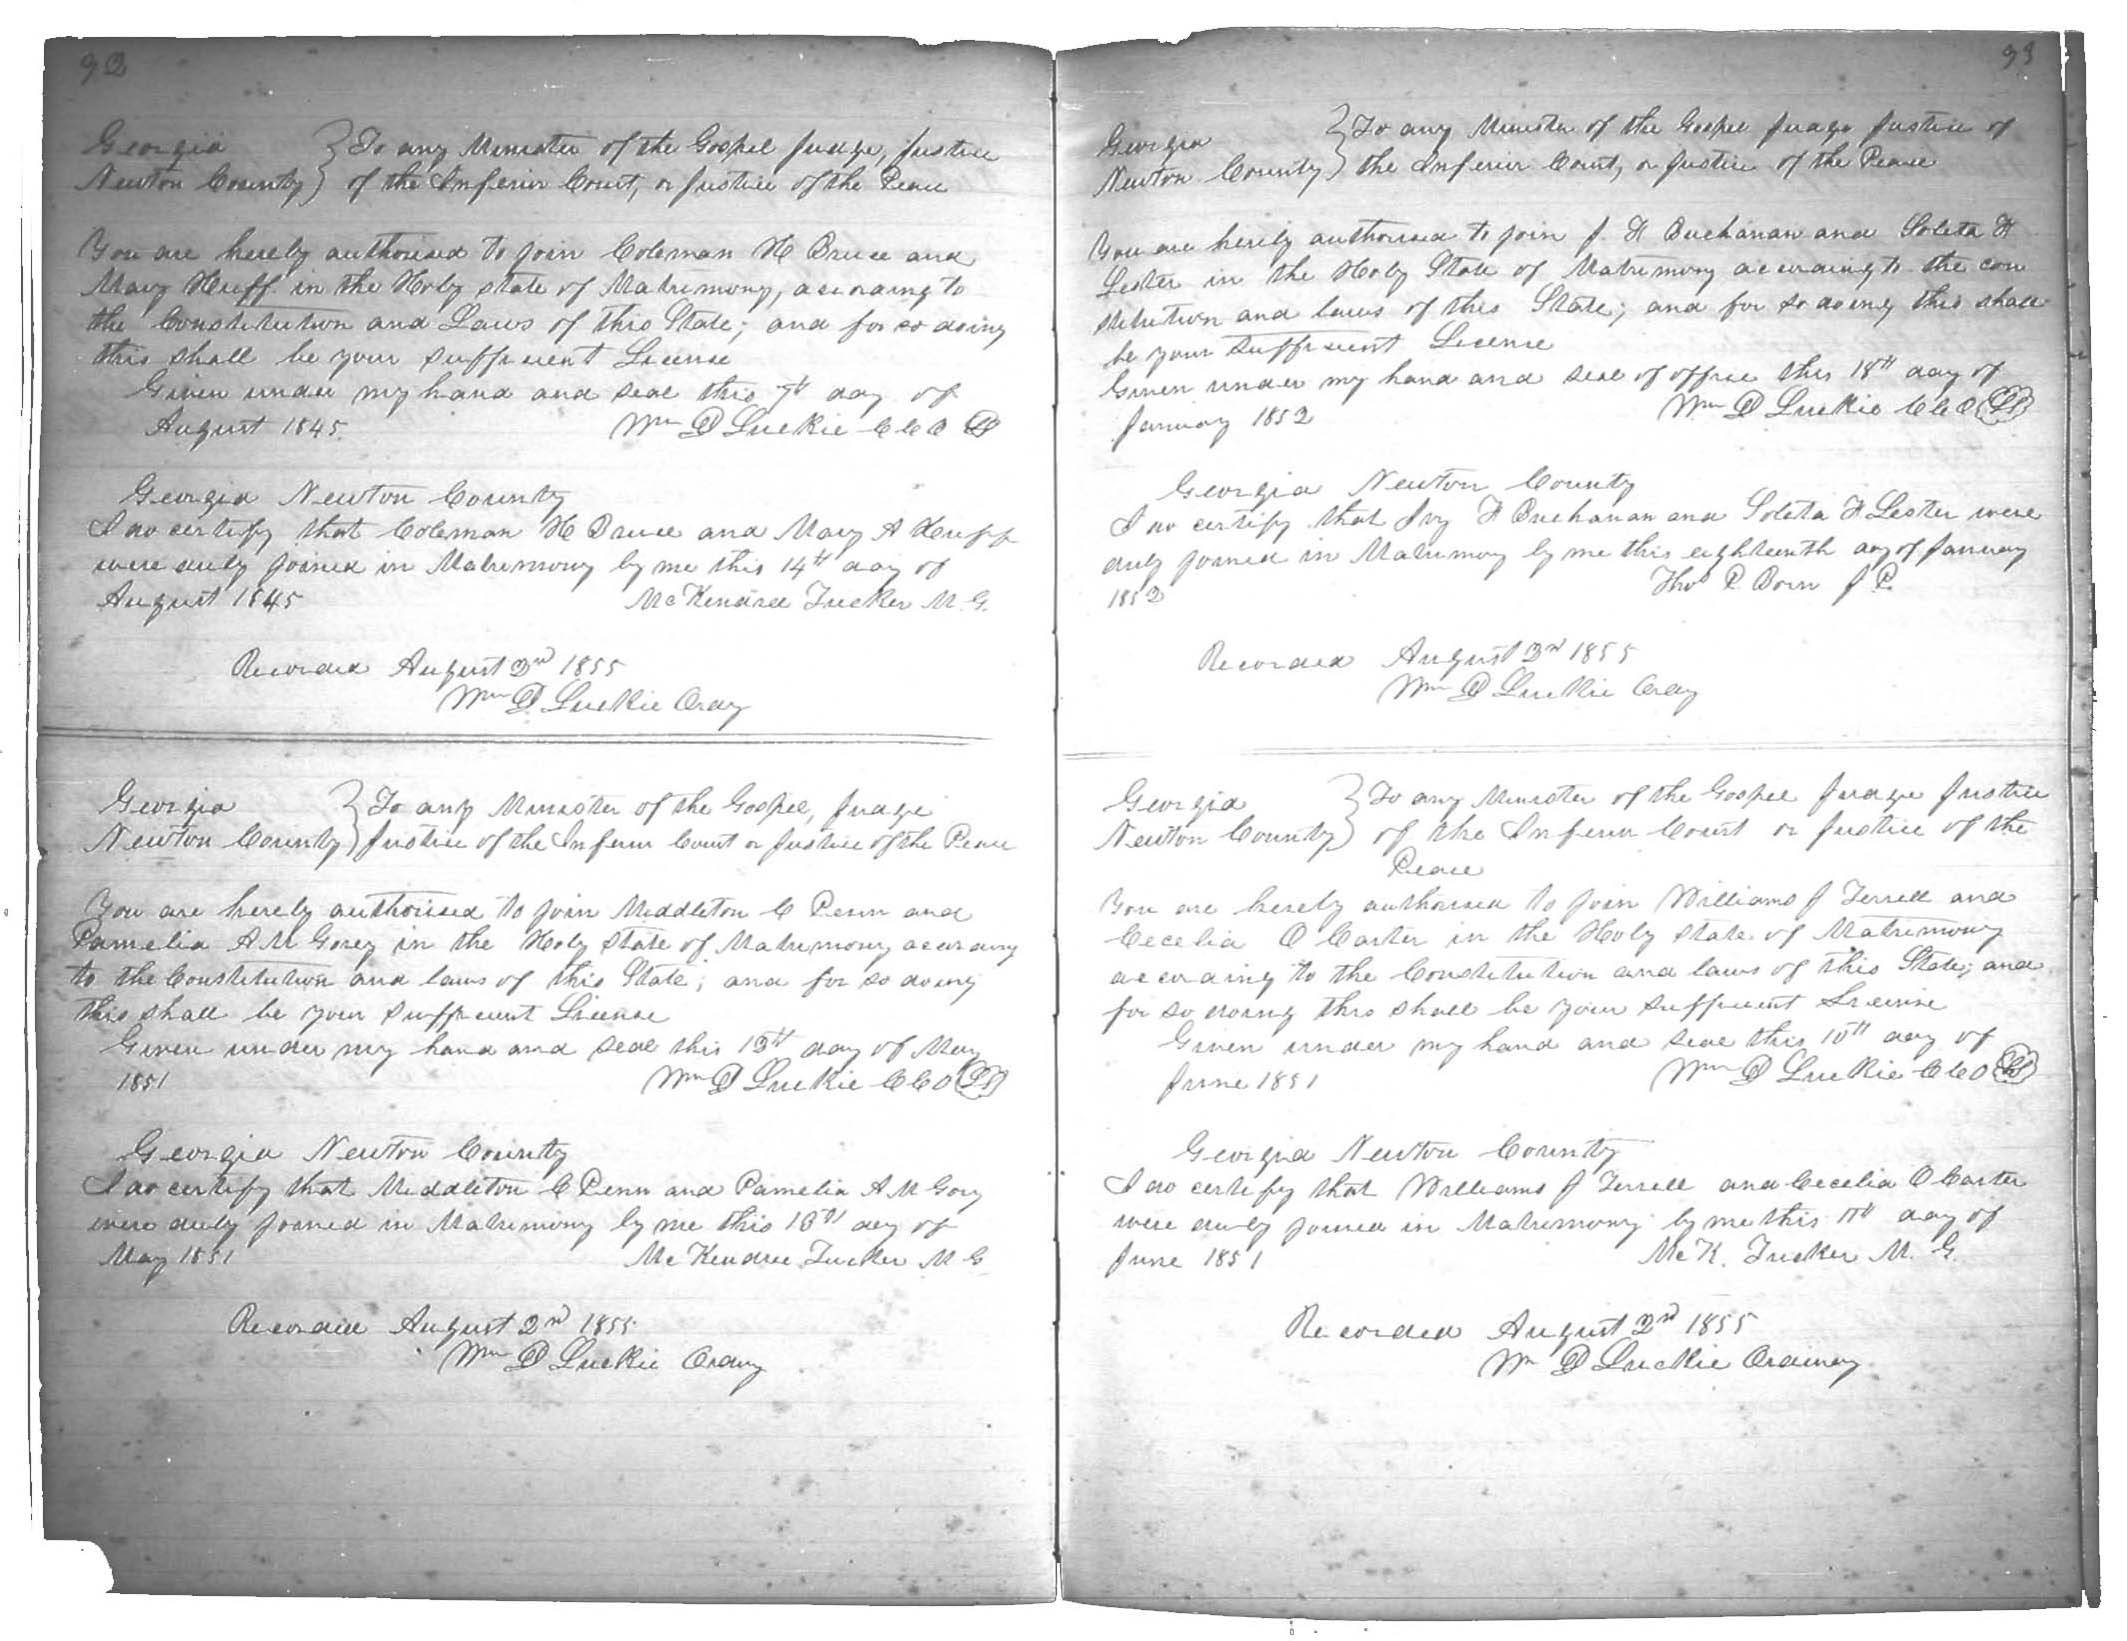 92
Georgia } To any Minister of the Gospel Judge, Justice
Newton County } of the Inferior Court, or Justice of the Peace
You are hereby authorised to join Coleman H Bruce and
Mary Huff in the Holy state of Matrimony, according to
the Constitution and Laws of this State; and for so doing
this shall be your sufficient License
Given under my hand and seal this 7th day of
August 1845 Wm D Luckie C C O LS
Georgia Newton County
I do certify that Coleman H Bruce and Mary A Huff
were duly joined in Matrimony by me this 14th day of
August 1845 McKendree Tucker M. G.
Recorded August 2nd 1855
Wm D Luckie Ordy
Georgia } To any Minister of the Gospel, Judge
Newton County } Justice of the Inferior Court or Justice of the Peace
You are hereby authorised to join Middleton C Penn and
Pamelia A M Gorey in the Holy state of Matrimony according
to the Constitution and laws of this State; and for so doing
this shall be your sufficient License
Given under my hand and seal this 13th day of May
1851 Wm D Luckie C C O LS
Georgia Newton County
I do certify that Middleton C Penn and Pamelia A M Gory
were duly joined in Matrimony by me this day of
May 1851 McKendree Tucker M G
Recorded August 2nd 1855
Wm D Luckie Ordny
93
Georgia } To any Minister of the Gospel Judge Justice of
Newton County } the Inferior Court, or Justice of the Peace
You are hereby authorised to join J. H Buchanan and Soleta H
Lester in the Holy State of Matrimony according to the con
stitution and laws of this State; and for so doing this shall
be your sufficient License
Given under my hand and seal of office this 18th day of
January 1852 Wm D Luckie C C O LS
Georgia Newton County
I do certify that Ivy H Buchanan and Soleta H Lester were
duly joined in Matrimony by me this eighteenth day of January
1852 Thos P. Born J P.
Recorded August 2nd 1855
Wm D Luckie Ordy
Georgia } To any Minister of the Gospel Judge Justice
Newton County } of the Inferior Court or Justice of the
Peace
You are hereby authorised to join Williams J Terrell and
Cecelia O Carter in the Holy state of Matrimony
according to the Constitution and laws of this State; and
for so doing this shall be your sufficient License
Given under my hand and seal this 10th day of
June 1851 Wm D Luckie C C O LS
Georgia Newton County
I do certify that Williams J Terrell and Cecelia O Carter
were duly joined in Matrimony by me this 11th day of
June 1851 McK. Tucker M. G.
Recorded August 2nd 1855
Wm D Luckie Ordinary